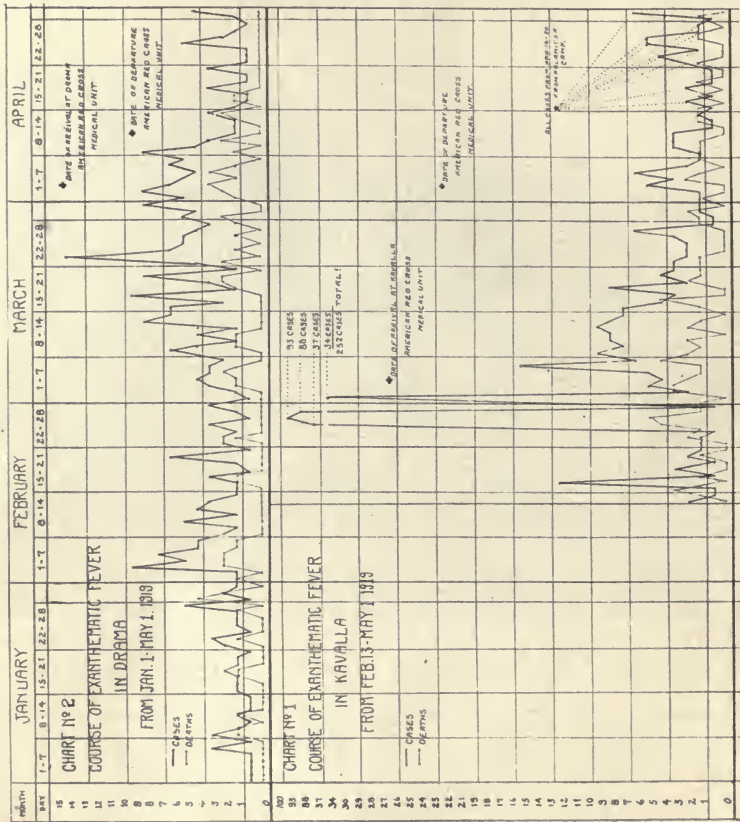 MONTH
JANUARY
FEBRUARY
MARCH
APRIL
DAY
1-7
8-14
15-21
22-28
1-7
8-14
15-21
22-28
1-7
8-14
15-21
22-28
1-7
8-14
15-21
22-28
15
14
13
12
11
10
9
8
7
6
5
4
3
2
1
0
CHART Nº 2
COURSE OF EXANTHEMATIC FEVER
IN DRAMA
FROM JAN. 1-MAY 1. 1919
CASES
DEATHS
DATE OF ARRIVAL AT DRAMA
AMERICAN RED CROSS
MEDICAL UNIT
DATE OF DEPARTURE
AMERICAN RED CROSS
MEDICAL UNIT
100
93
88
37
34
30
29
28
27
26
25
24
23
22
21
19
18
17
16
15
14
13
12
11
10
9
8
7
6
5
4
3
2
1
0
CHART Nº 1
COURSE OF EXANTHEMATIC FEVER
IN KAVALLA
FROM FEB. 13-MAY 1 1919
CASES
DEATHS
93 CASES
88 CASES
37 CASES
34 CASES
252 CASES TOTAL!
DATE OF ARRIVAL AT KAVALLA
AMERICAN RED CROSS
MEDICAL UNIT
DATE OF DEPARTURE
AMERICAN RED CROSS
MEDICAL UNIT
ALL CASES FROM
CAMP.